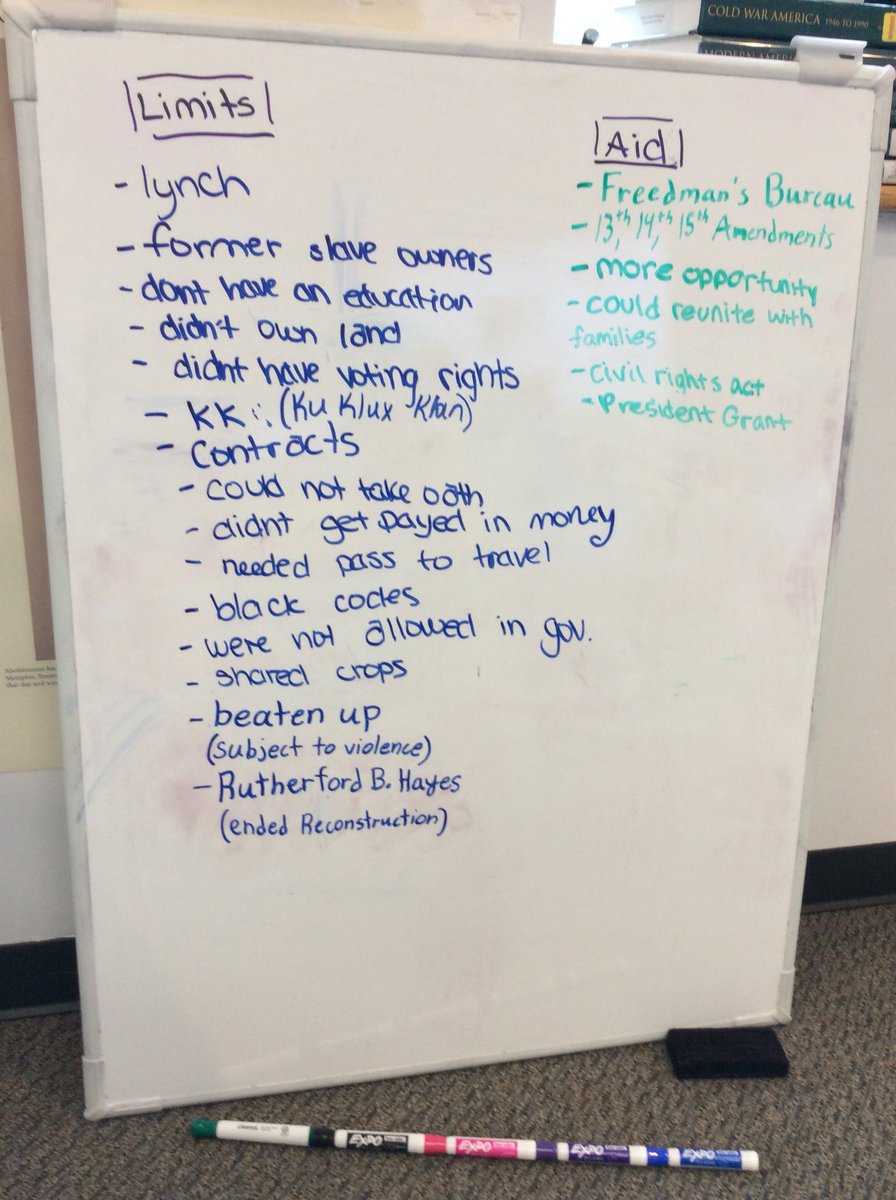 COLD WAR AMERICA 1946 TO 1990
Limits
- lynch
- former slave owners
- dont have an education
- didn't own land
- didnt have voting rights
- KK (Ku Klux Klan)
- contracts
- could not take oath
- didnt get payed in money
- needed pass to travel
- black codes
- were not allowed in gov.
- shared crops
- beaten up
(subject to violence)
- Rutherford B. Hayes
(ended Reconstruction)
Aid
- Freedman's Bureau
- 13th, 14th, 15th Amendments
- more opportunity
- could reunite with
families
- civil rights act
- President Grant
EXPO
EXPO
EXPO
EXPO